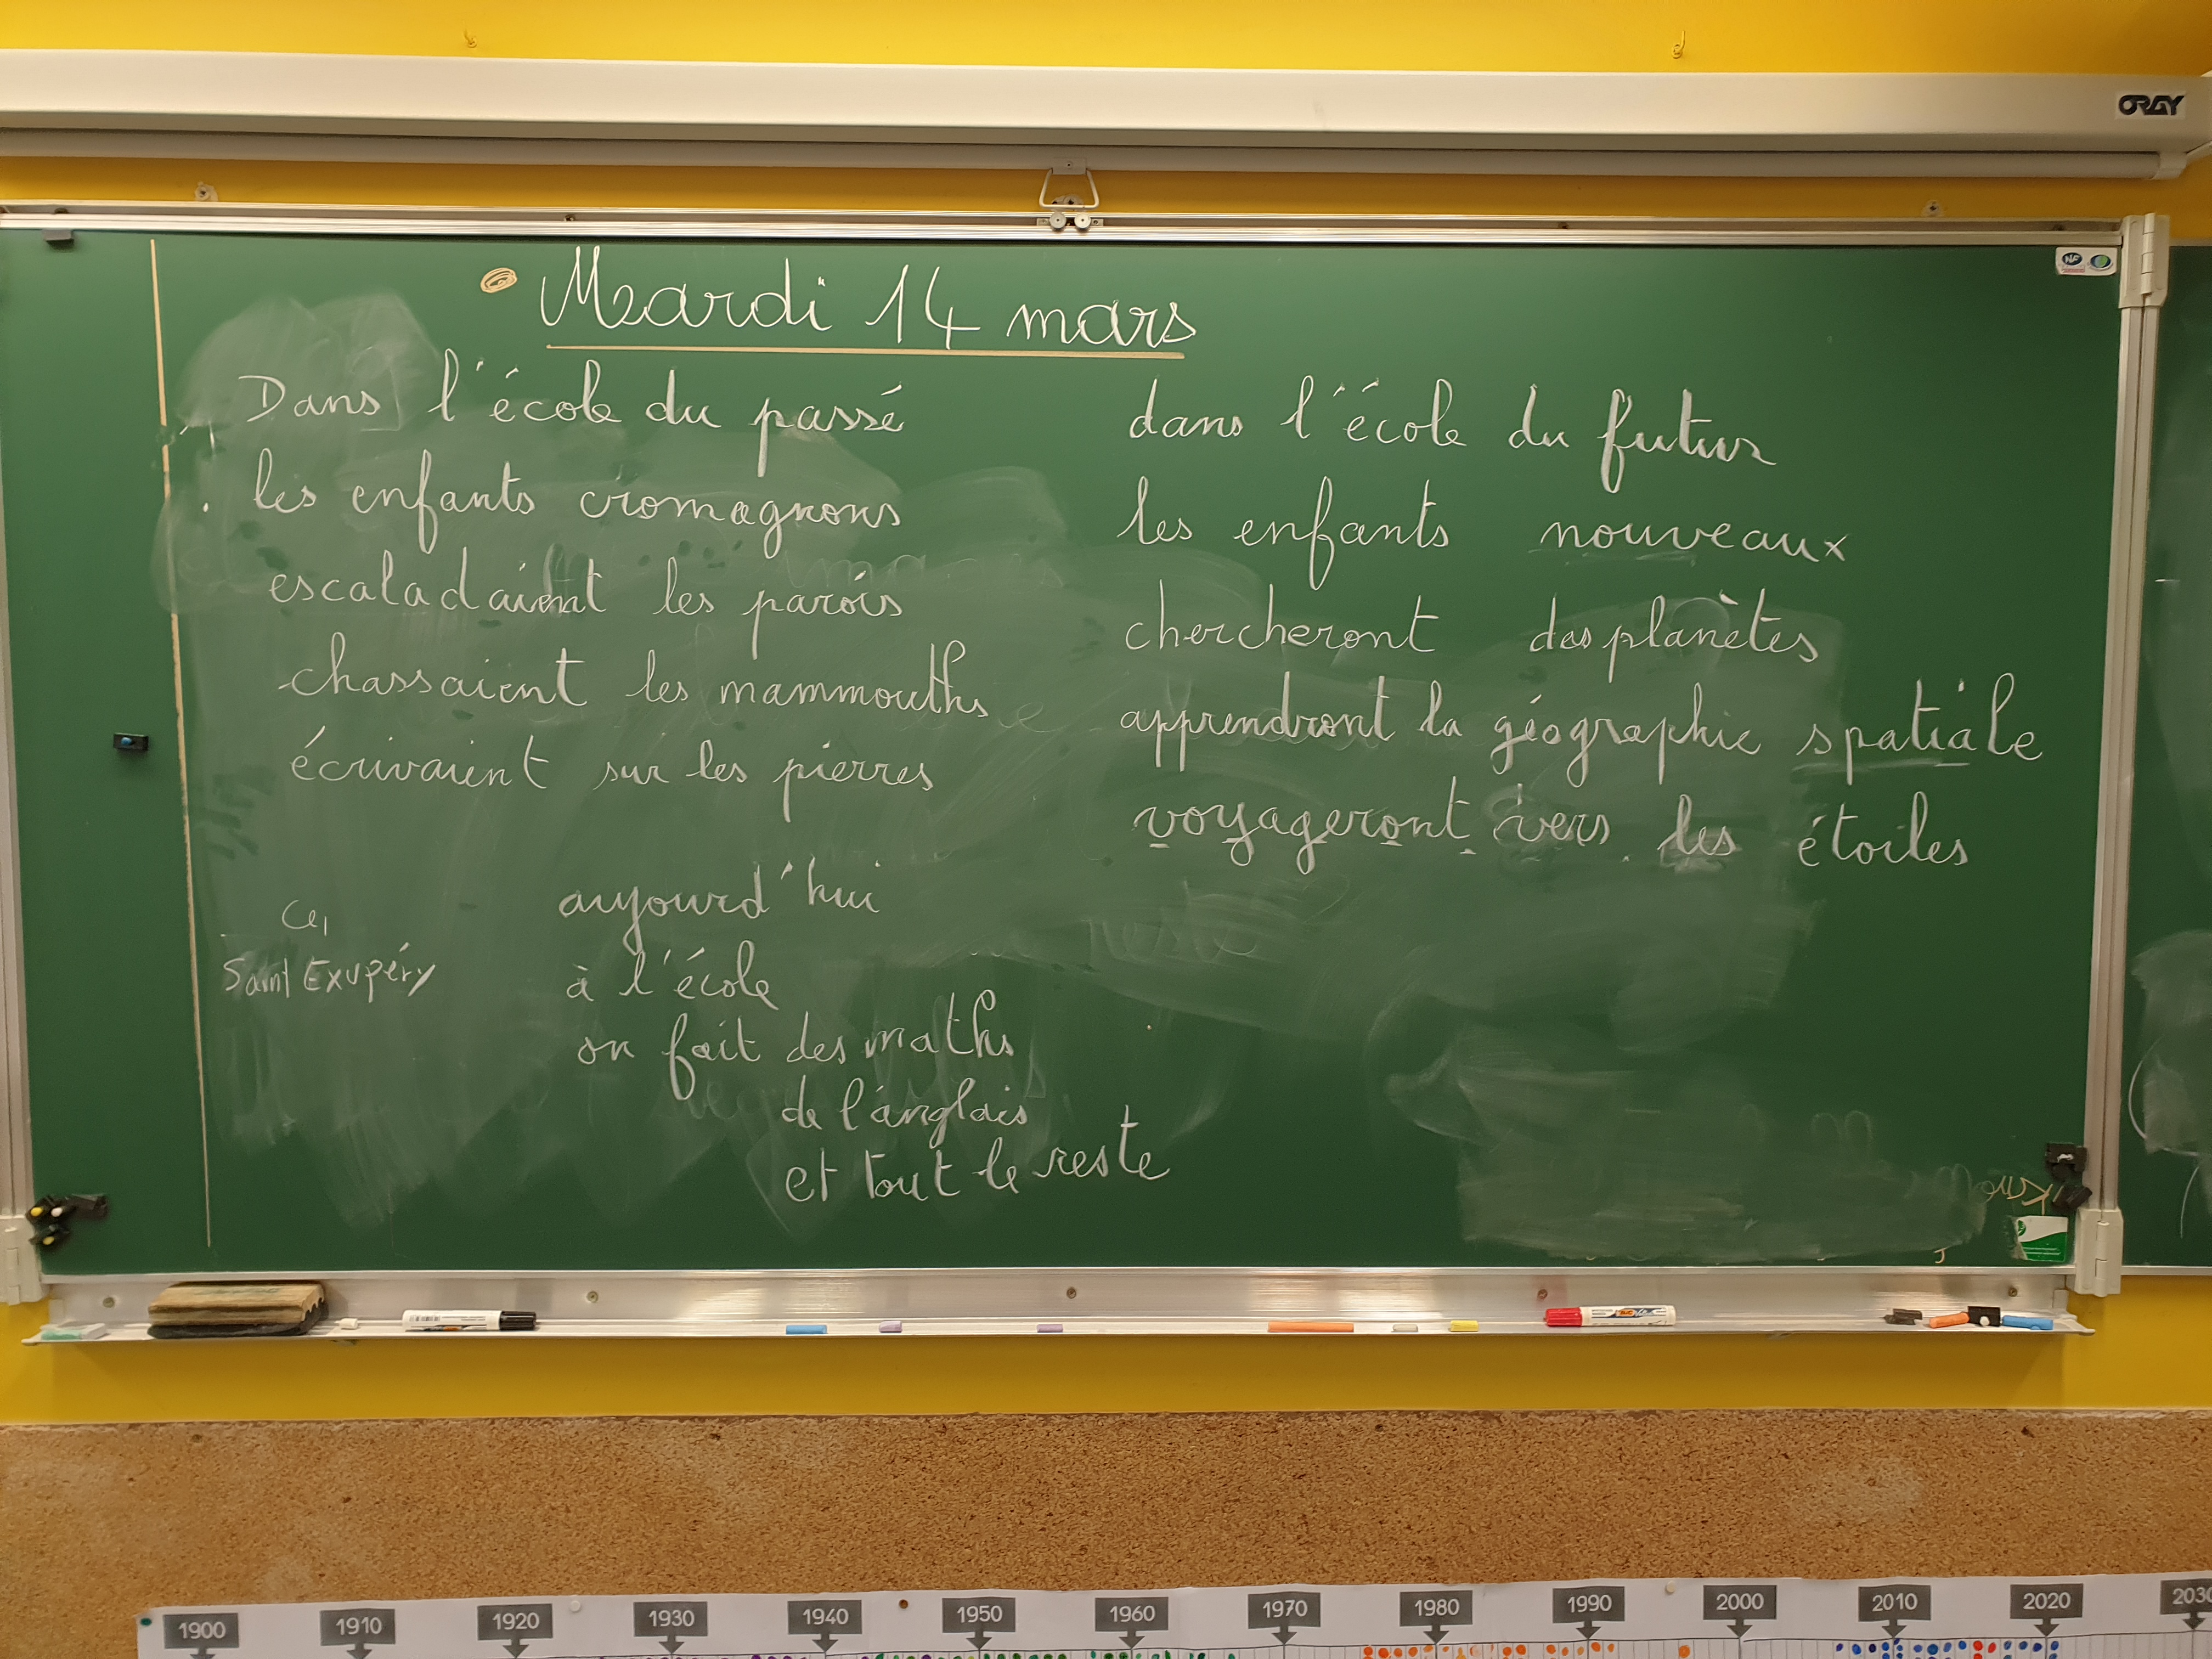 ORAY
NF
Mardi 14 mars
Dans l'école du passé
les enfants cromagnons
escaladaient les parois
chassaient les mammouths
écrivaient sur les pierres
dans l'école du futur
les enfants nouveaux
chercheront des planètes
apprendront la géographie spatiale
voyageront vers les étoiles
Ce1
Saint Exupéry
aujourd'hui
à l'école
on fait des maths
de l'anglais
et tout le reste
BIC
1900 1910 1920 1930 1940 1950 1960 1970 1980 1990 2000 2010 2020 2030